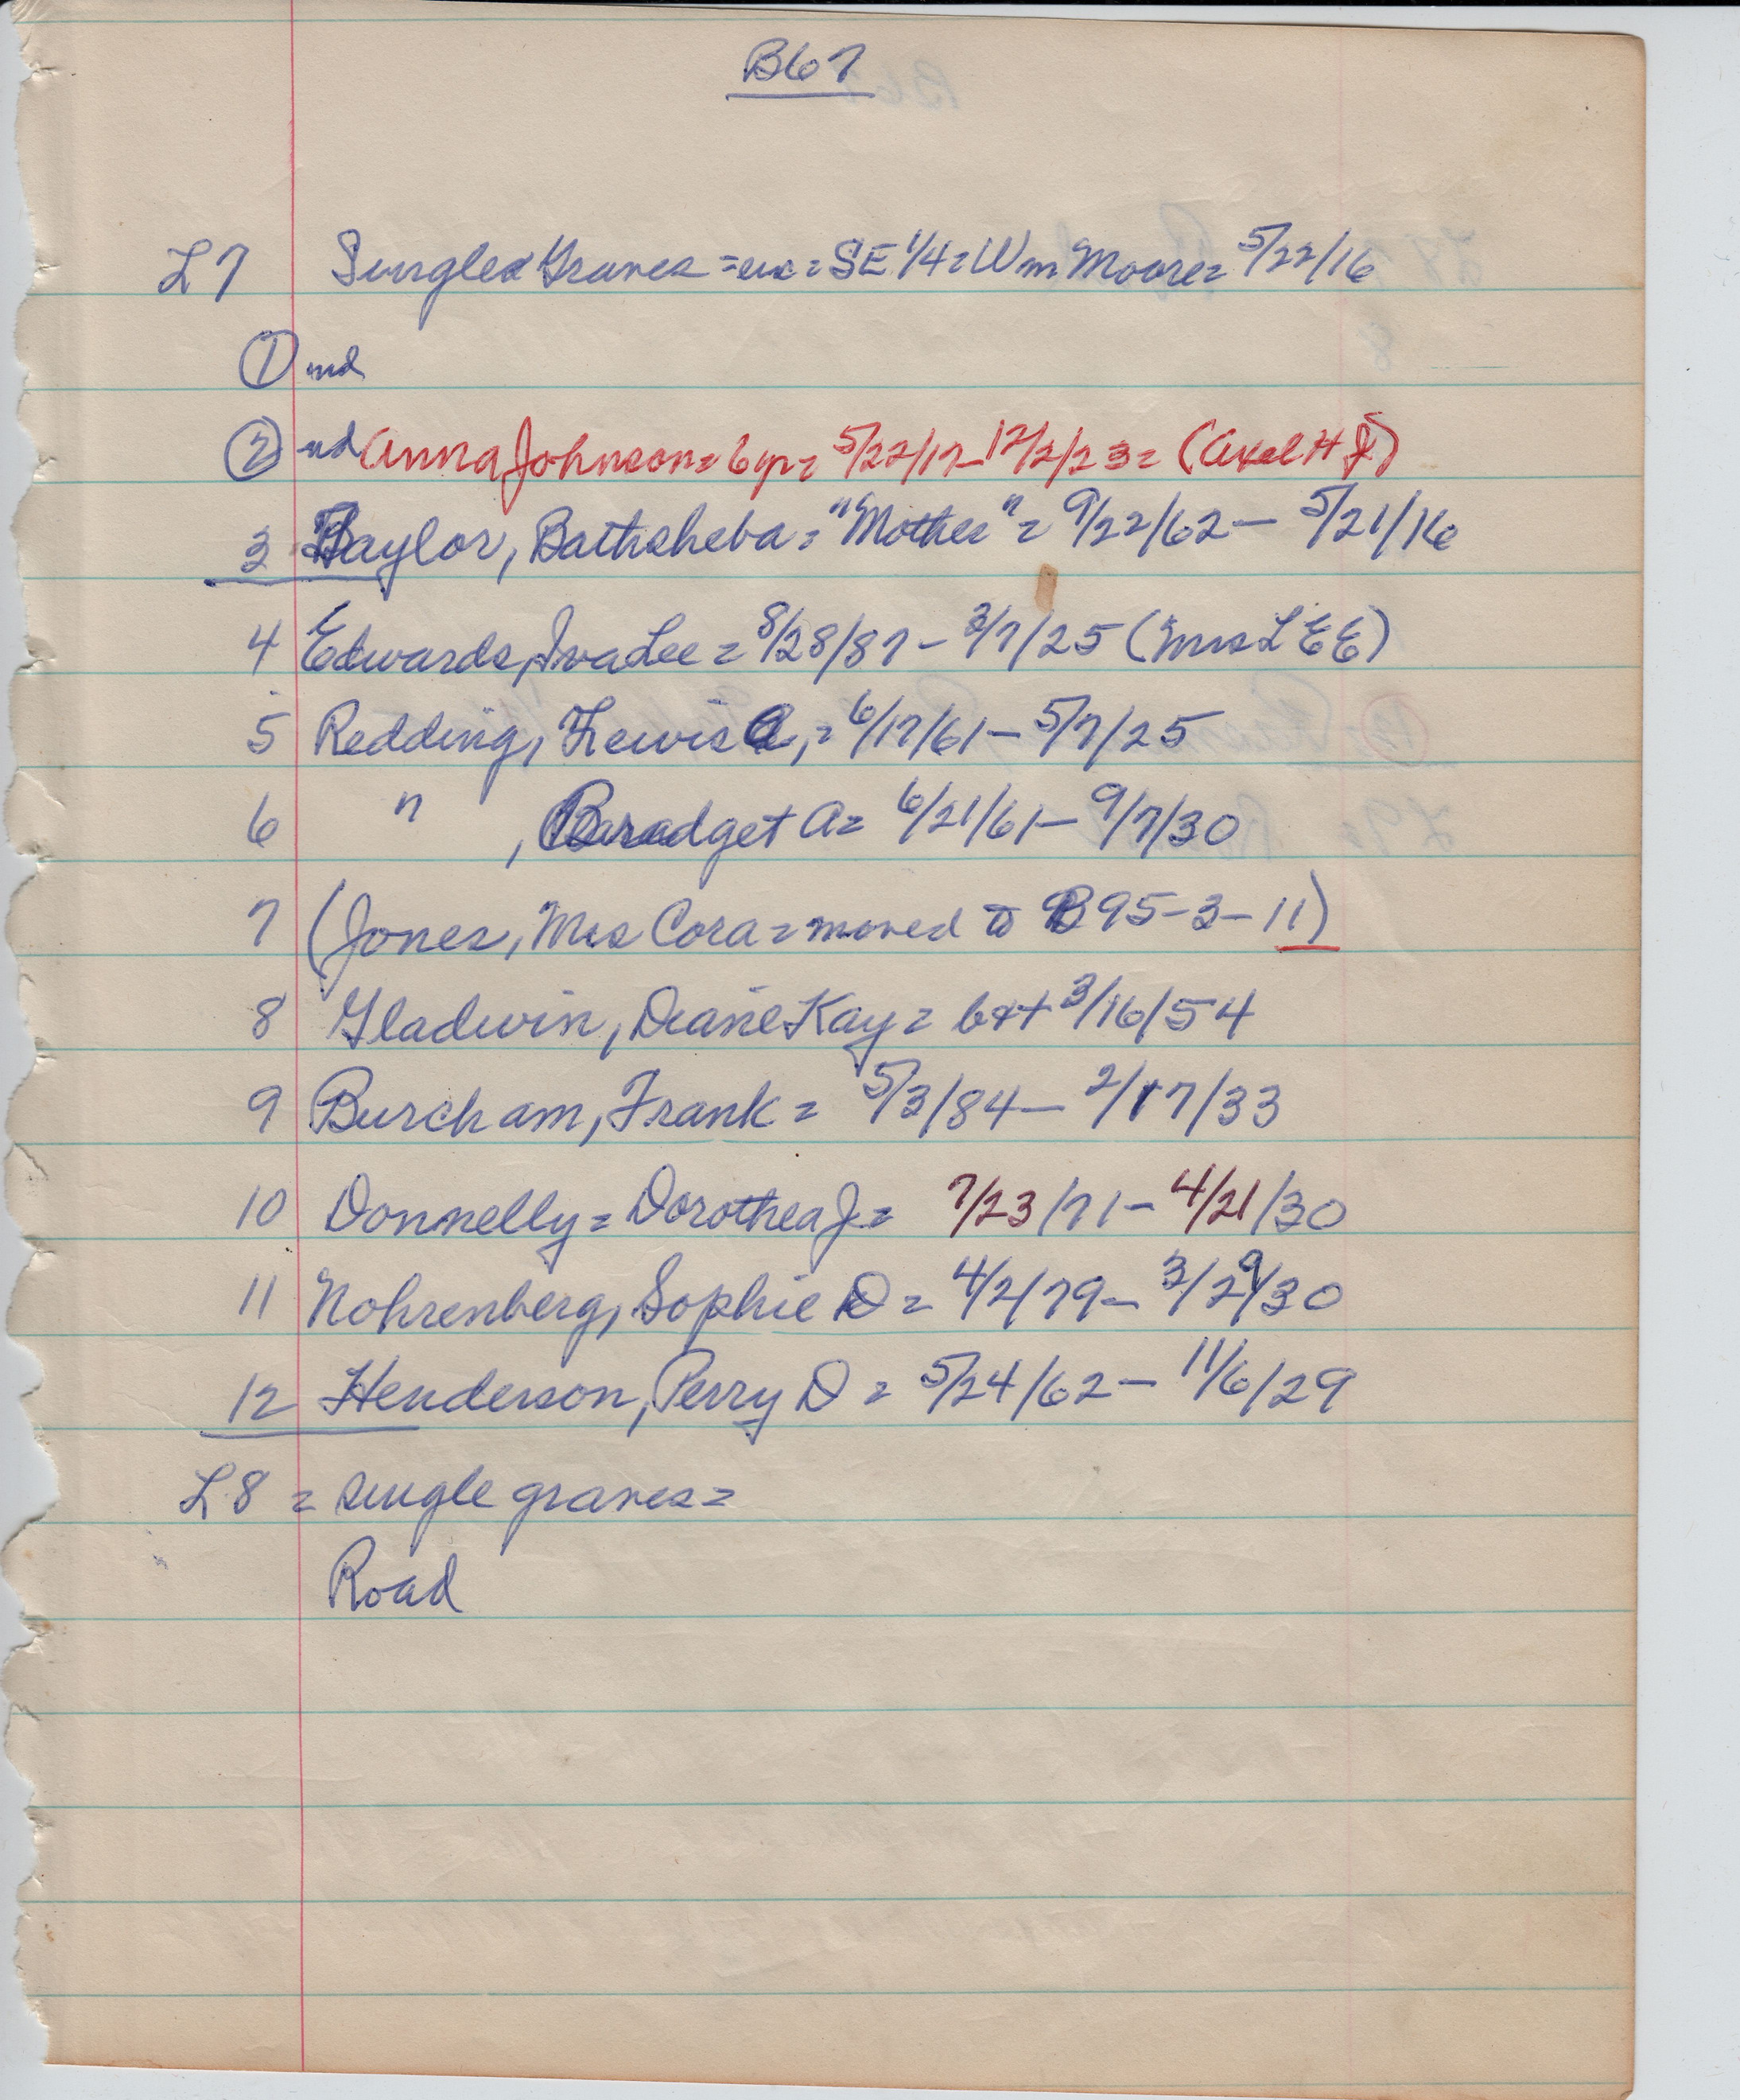 B67
L7 Single Graves = exc = SE 1/4 = Wm Moore = 5/22/16
① nd
② nd Anna Johnson = 6yr = 5/22/17 - 12/2/23 = (Axel H J)
3 Taylor, Bathsheba = "Mother" = 9/22/62 - 5/21/16
4 Edwards, Iva Lee = 8/28/87 - 3/7/25 (Mrs L E E)
5 Redding, Lewis A, = 6/17/61 - 5/7/25
6 " , Bradget A = 6/21/61 - 9/7/30
7 (Jones, Mrs Cora = moved to B95-3-11)
8 Gladwin, Diane Kay = b&d 3/16/54
9 Burcham, Frank = 5/3/84 - 2/17/33
10 Donnelly = Dorothea J = 7/23/71 - 4/21/30
11 Nohrenberg, Sophie D = 4/2/79 - 3/29/30
12 Henderson, Perry D = 5/24/62 - 11/6/29
L8 = single graves =
Road